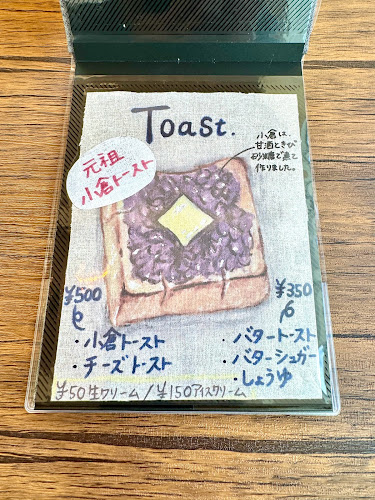 Toast.
元祖
小倉トースト
小倉は、
甘酒ときび
砂糖で煮て
作りました。
¥500
・小倉トースト
・チーズトースト
¥350
・バタートースト
・バターシュガー
・しょうゆ
¥50生クリーム / ¥150アイスクリーム